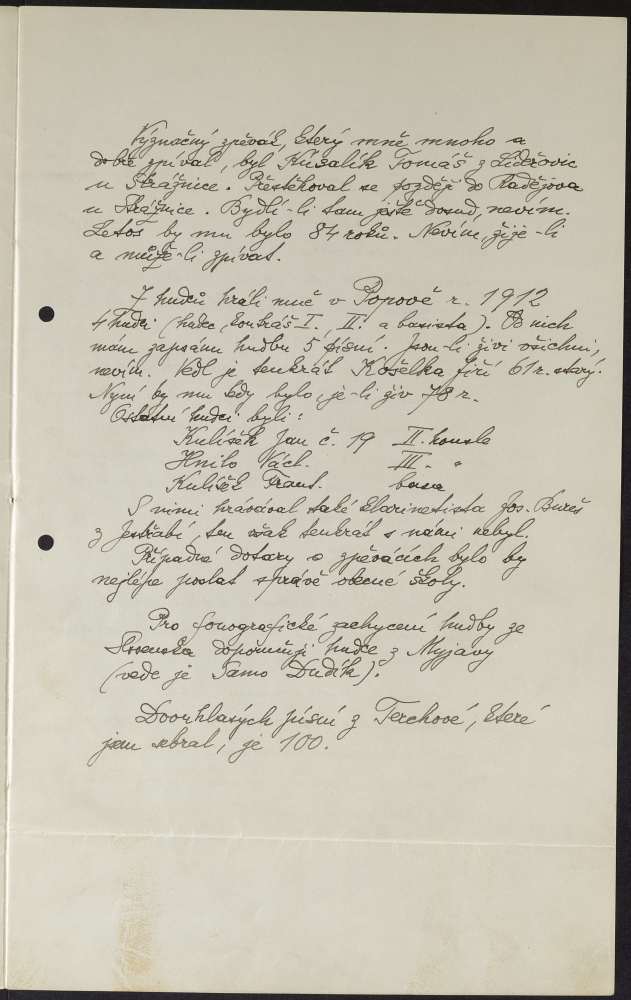 Význačný zpěvák, který mně mnoho a
dobře zpíval, byl Kúsalík Tomáš z Lideřovic
u Strážnice. Přestěhoval se později do Radějova
u Strážnice. Bydlí-li tam ještě dosud, nevím.
Letos by mu bylo 84 roků. Nevím, žije-li
a může-li zpívat.
7 hudců hráli mně v Popově r. 1912
4 hudci (hudec, kontráš I., II. a basista). Od nich
mám zapsánu hudbu 5 písní. Jsou-li živi všichni,
nevím. Vedl je tenkrát Košelka Jiří 61 r. starý.
Nyní by mu tedy bylo, je-li živ 78 r.
Ostatní hudci byli:
Kulíšek Jan č. 19 II. housle
Hnilo Václ. III. "
Kulíšek Frant. basa
S nimi hrávával také klarinetista Jos. Bureš
z Jestřabí, ten však tenkrát s námi nebyl.
Případné dotazy o zpěvácích bylo by
nejlépe poslat správě obecné školy.
Pro fonografické zachycení hudby ze
Slovenska doporučuji hudce z Myjavy
(vede je Samo Dudík).
Dvouhlasých písní z Terchové, které
jsem sebral, je 100.